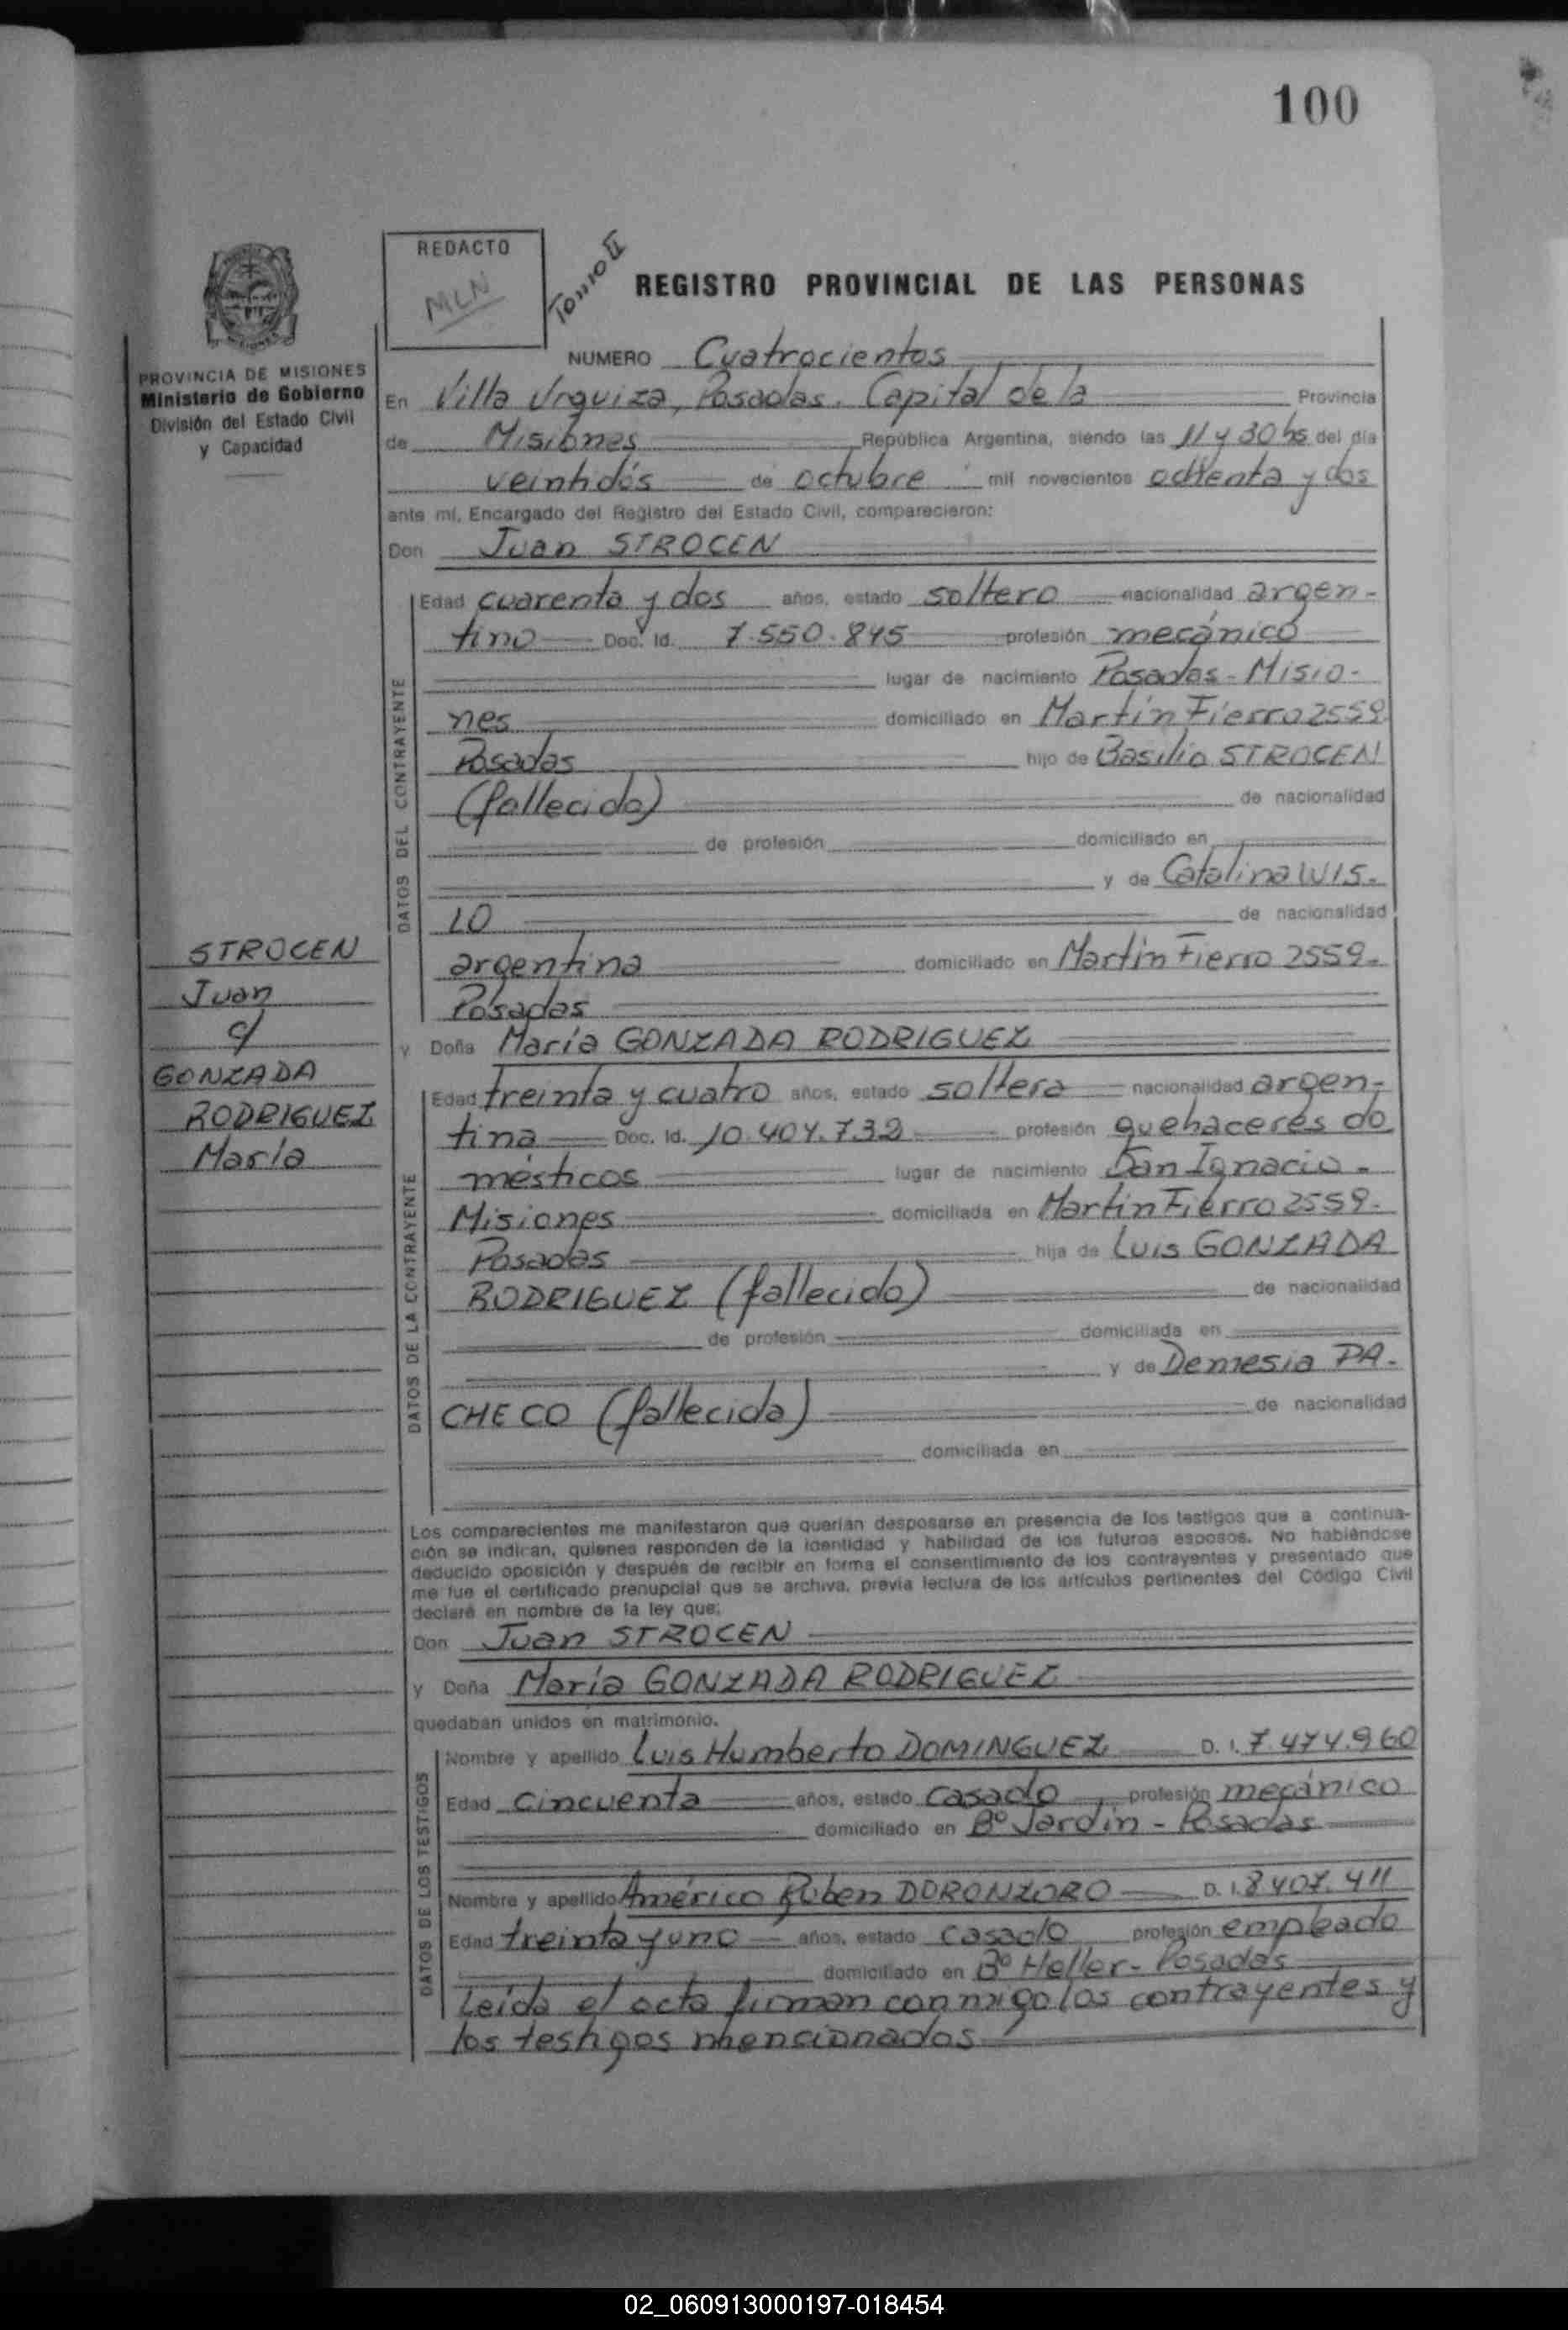 100
REDACTO
MLN
Tomo II
REGISTRO PROVINCIAL DE LAS PERSONAS
PROVINCIA DE MISIONES
Ministerio de Gobierno
División del Estado Civil
y Capacidad
NUMERO Cuatrocientos
En Villa Urquiza, Posadas. Capital de la Provincia
de Misiones República Argentina, siendo las 11 y 30 hs del día
veintidós de octubre mil novecientos ochenta y dos
ante mí, Encargado del Registro del Estado Civil, comparecieron:
Don Juan STROCEN
DATOS DEL CONTRAYENTE
Edad cuarenta y dos años, estado soltero nacionalidad argen-
tino Doc. Id. 7.550.845 profesión mecánico
lugar de nacimiento Posadas - Misio-
nes domiciliado en Martín Fierro 2559
Posadas hijo de Basilio STROCEN
(fallecido) de nacionalidad
de profesión domiciliado en
y de Catalina WIS-
LO de nacionalidad
argentina domiciliado en Martín Fierro 2559-
Posadas
STROCEN
Juan
c/
GONZADA
RODRIGUEZ
María
y Doña María GONZADA RODRIGUEZ
DATOS DE LA CONTRAYENTE
Edad treinta y cuatro años, estado soltera nacionalidad argen-
tina Doc. Id. 10.404.732 profesión quehaceres do
mésticos lugar de nacimiento San Ignacio -
Misiones domiciliada en Martín Fierro 2559-
Posadas hija de Luis GONZADA
RODRIGUEZ (fallecido) de nacionalidad
de profesión domiciliada en
y de Demesia PA-
CHECO (fallecida) de nacionalidad
domiciliada en
Los comparecientes me manifestaron que querían desposarse en presencia de los testigos que a continua-
ción se indican, quienes responden de la identidad y habilidad de los futuros esposos. No habiéndose
deducido oposición y después de recibir en forma el consentimiento de los contrayentes y presentado que
me fue el certificado prenupcial que se archiva, previa lectura de los artículos pertinentes del Código Civil
declaré en nombre de la ley que:
Don Juan STROCEN
y Doña María GONZADA RODRIGUEZ
quedaban unidos en matrimonio.
DATOS DE LOS TESTIGOS
Nombre y apellido Luis Humberto DOMINGUEZ D. I. 7.474.960
Edad cincuenta años, estado casado profesión mecánico
domiciliado en Bº Jardín - Posadas
Nombre y apellido Américo Ruben DORONZORO D. I. 8407.411
Edad treinta y uno años, estado casado profesión empleado
domiciliado en Bº Heller - Posadas
Leída el acta firman conmigo los contrayentes y
los testigos mencionados
02_060913000197-018454